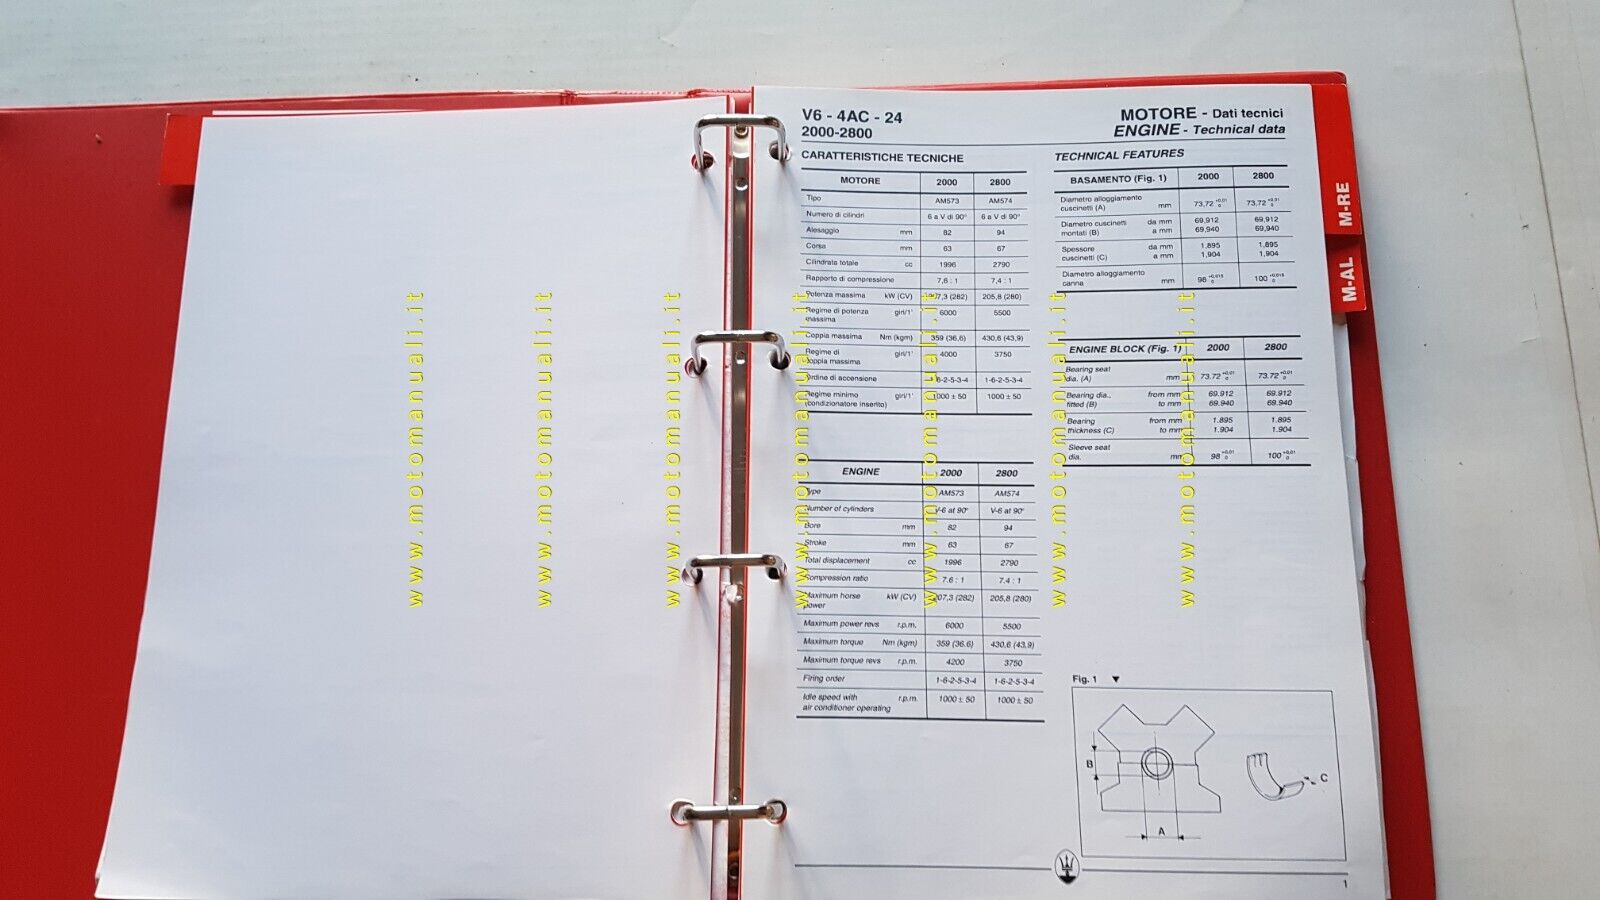 V6 - 4AC - 24
2000-2800
MOTORE - Dati tecnici
ENGINE - Technical data
CARATTERISTICHE TECNICHE
MOTORE 2000 2800
Tipo AM573 AM574
Numero di cilindri 6 a V di 90° 6 a V di 90°
Alesaggio mm 82 94
Corsa mm 63 67
Cilindrata totale cc 1996 2790
Rapporto di compressione 7,6 : 1 7,4 : 1
Potenza massima kW (CV) 207,3 (282) 205,8 (280)
Regime di potenza massima giri/1' 6000 5500
Coppia massima Nm (kgm) 359 (36,6) 430,6 (43,9)
Regime di coppia massima giri/1' 4000 3750
Ordine di accensione 1-6-2-5-3-4 1-6-2-5-3-4
Regime minimo (condizionatore inserito) giri/1' 1000 ± 50 1000 ± 50
ENGINE 2000 2800
Type AM573 AM574
Number of cylinders V-6 at 90° V-6 at 90°
Bore mm 82 94
Stroke mm 63 67
Total displacement cc 1996 2790
Compression ratio 7.6 : 1 7.4 : 1
Maximum horse power kW (CV) 207,3 (282) 205,8 (280)
Maximum power revs r.p.m. 6000 5500
Maximum torque Nm (kgm) 359 (36.6) 430,6 (43,9)
Maximum torque revs r.p.m. 4200 3750
Firing order 1-6-2-5-3-4 1-6-2-5-3-4
Idle speed with air conditioner operating r.p.m. 1000 ± 50 1000 ± 50
TECHNICAL FEATURES
BASAMENTO (Fig. 1) 2000 2800
Diametro alloggiamento cuscinetti (A) mm 73,72 +0,01 0 73,72 +0,01 0
Diametro cuscinetti montati (B) da mm 69,912 69,912
a mm 69,940 69,940
Spessore cuscinetti (C) da mm 1,895 1,895
a mm 1,904 1,904
Diametro alloggiamento canna mm 98 +0,015 0 100 +0,015 0
ENGINE BLOCK (Fig. 1) 2000 2800
Bearing seat dia. (A) mm 73.72 +0.01 0 73.72 +0.01 0
Bearing dia., fitted (B) from mm 69.912 69.912
to mm 69.940 69.940
Bearing thickness (C) from mm 1.895 1.895
to mm 1.904 1.904
Sleeve seat dia. mm 98 +0.01 0 100 +0.01 0
Fig. 1
B
A
C
1
M-RE
M-AL
www.motomanuali.it
www.motomanuali.it
www.motomanuali.it
www.motomanuali.it
www.motomanuali.it
www.motomanuali.it
www.motomanuali.it